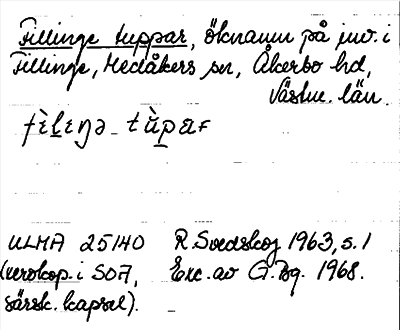 Fillinge tuppar, öknamn på inv. i
Fillinge, Medåkers sn, Åkerbo hd,
Västm. län.
fɛ̀lɛŋə - tùpar
ULMA 25140 R. Svedskog 1963, s. 1
(xerokop. i SOA, Exc. av G. Bg. 1968.
särsk. kapsel).